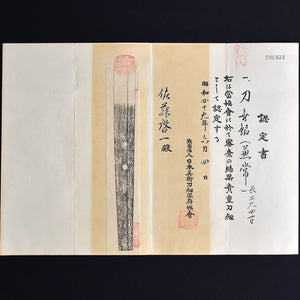 認定書
一、刀 無銘(兼常) 長二尺四寸
右は當協會に於て審査の結果貴重刀剣
として認定する
昭和四十九年六月四日
財團法人日本美術刀剣保存協會
佐藤啓一殿